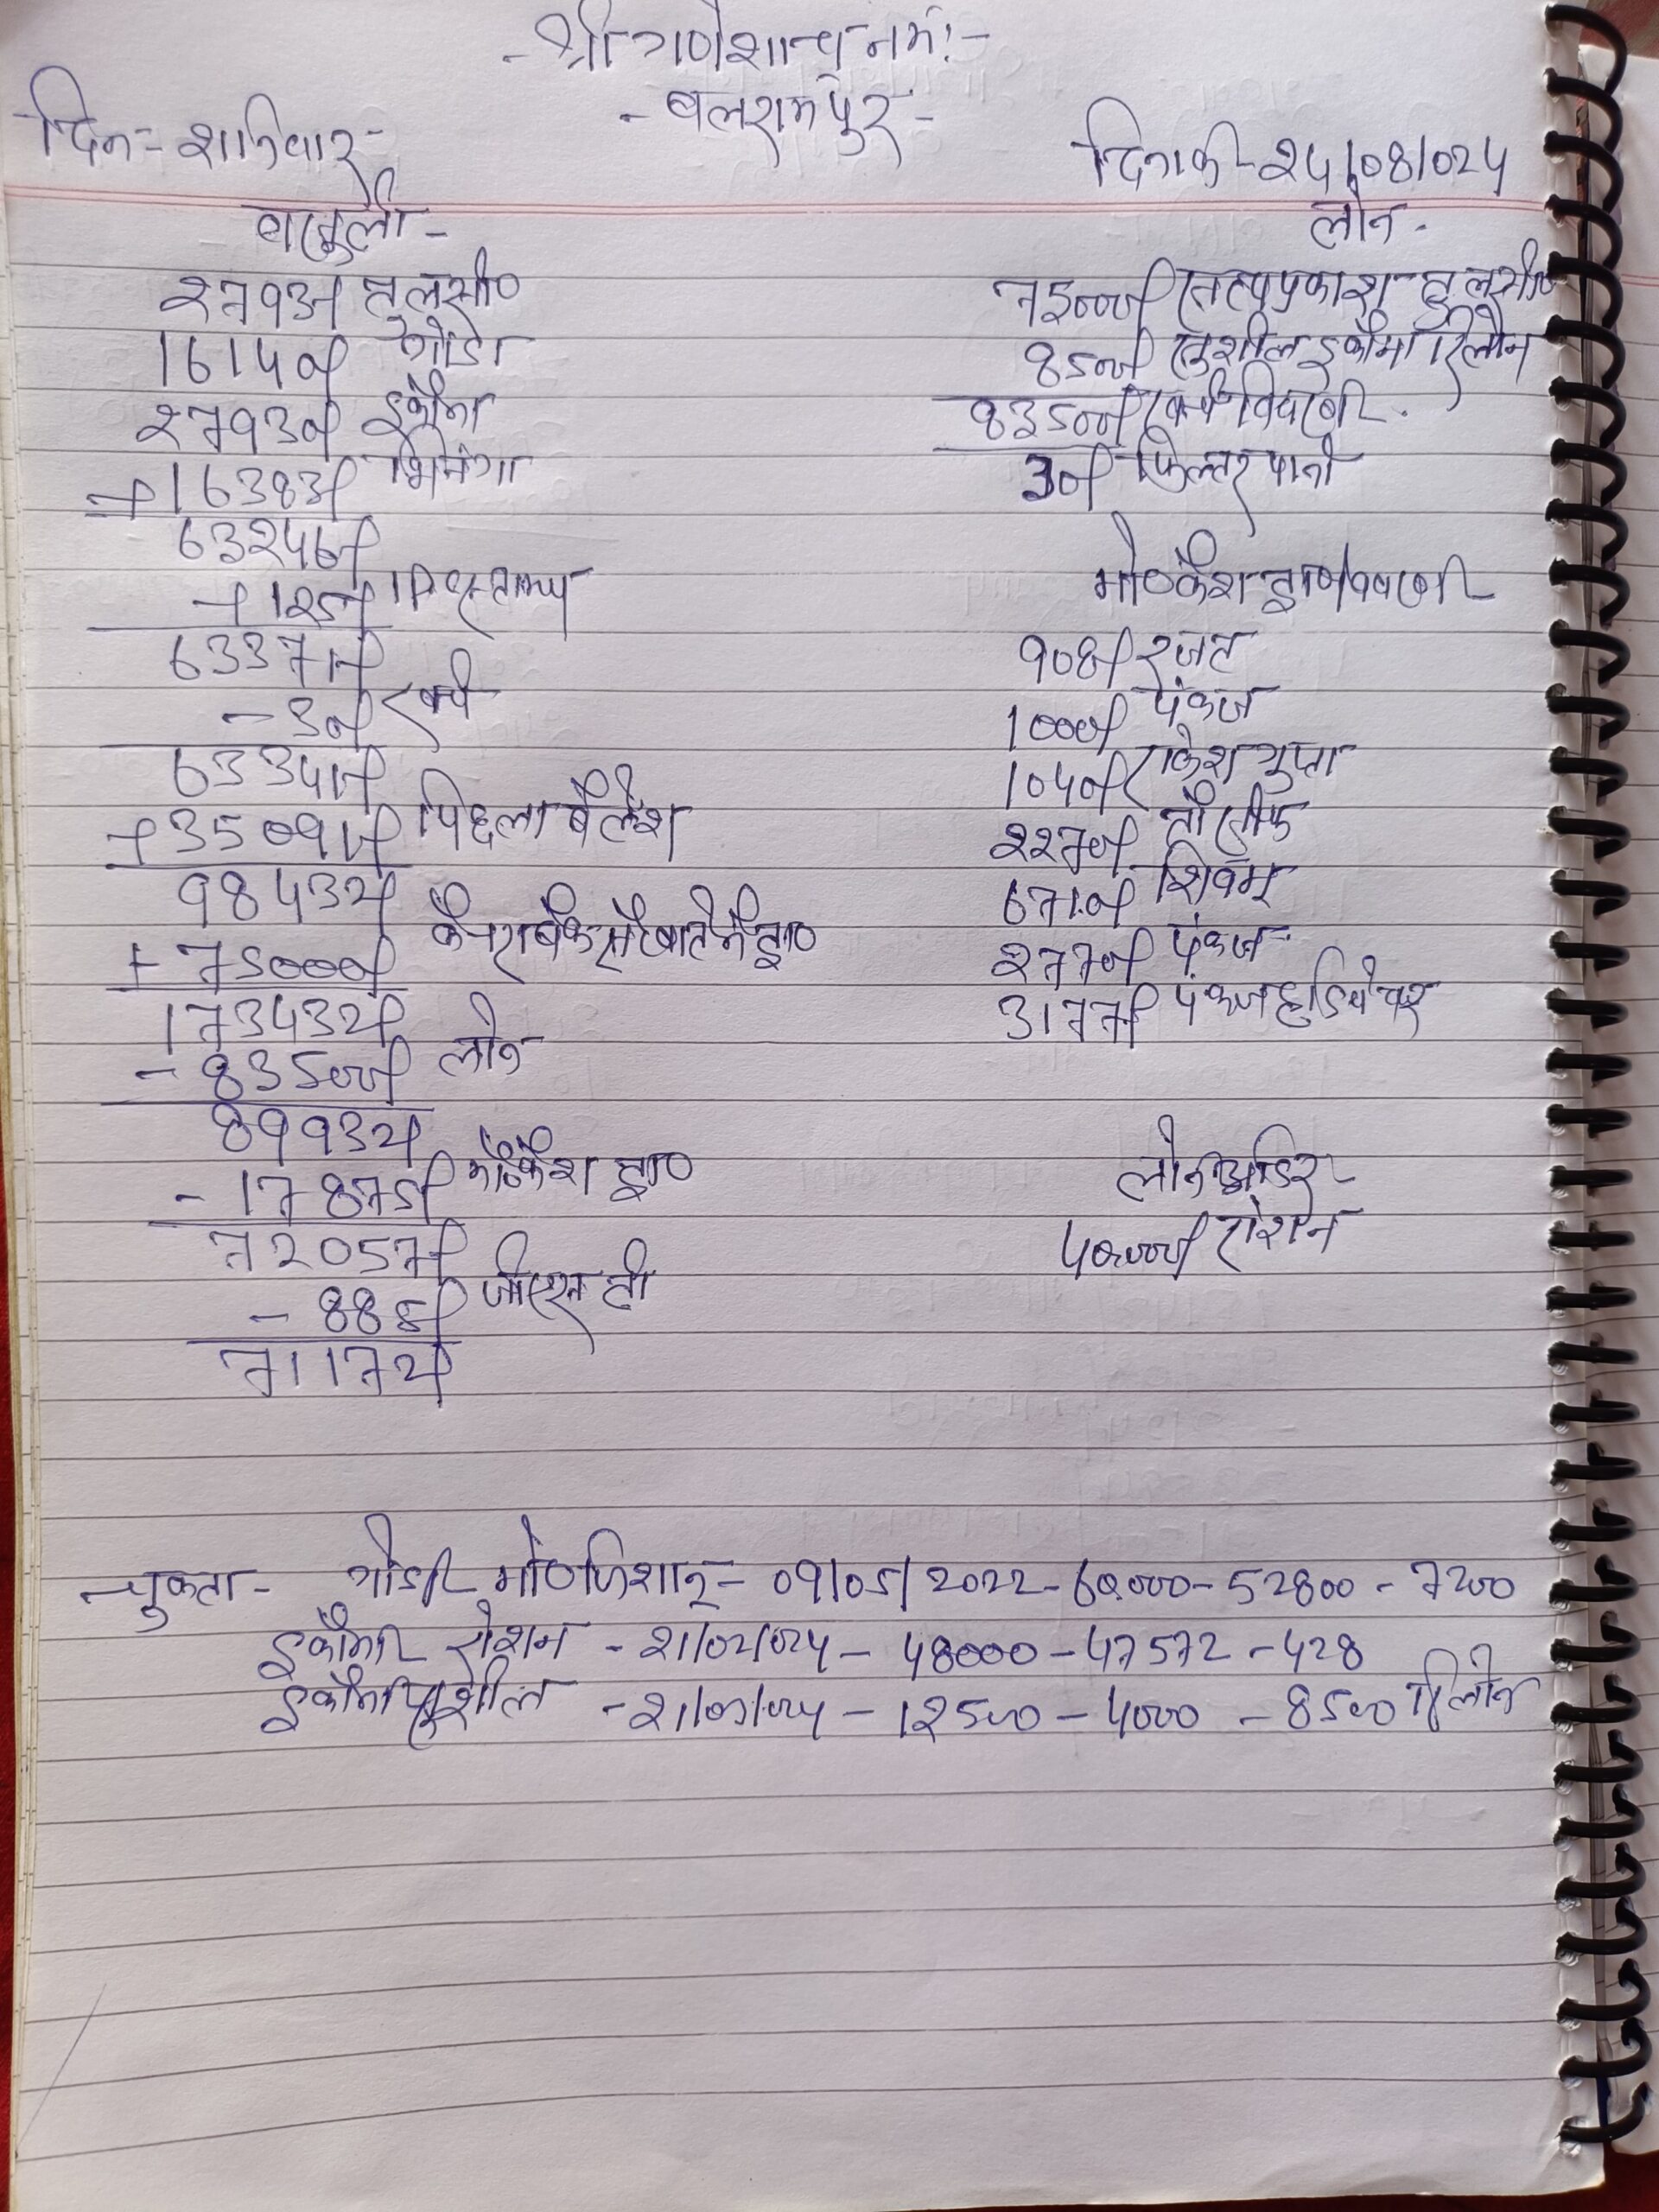 - श्री गणेशाय नमः -
- बलरामपुर -
दिन = शनिवार -
दिनांक - 24/08/024
वसूली -
2793/ तुलसी०
16140/ गोंडा
27930/ इकौना
+ 16383/ भिनगा
63246/
+ 125/
63371/
- 30/ खर्च
63341/
+ 35091/ पिछला बैलेंश
98432/
+ 75000/ केनरा बैंक से खाते में द्वा०
173432/
- 83500/ लोन
89932/
- 17875/ मो०कैश द्वा०
72057/
- 885/ जीएसटी
71172/
लोन -
75000/ सत्यप्रकाश - तुलसी०
8500/ सुशील इकौना रिलोन
83500/ खर्च विवरण
30/ फिल्टर पानी
मो०कैश द्वारा विवरण
908/ रजत
1000/ पंकज
1040/ राकेश गुप्ता
2270/
6710/ शिवम
2770/ पंकज
3177/ पंकज
लोन आर्डर -
40000/ रोशन
चुकता - गोंडा मो० निशार = 09/05/2022 - 60,000 - 52800 - 7200
इकौना रोशन - 21/02/024 - 48000 - 47572 - 428
इकौना सुशील - 21/03/024 - 12500 - 4000 - 8500 रिलोन